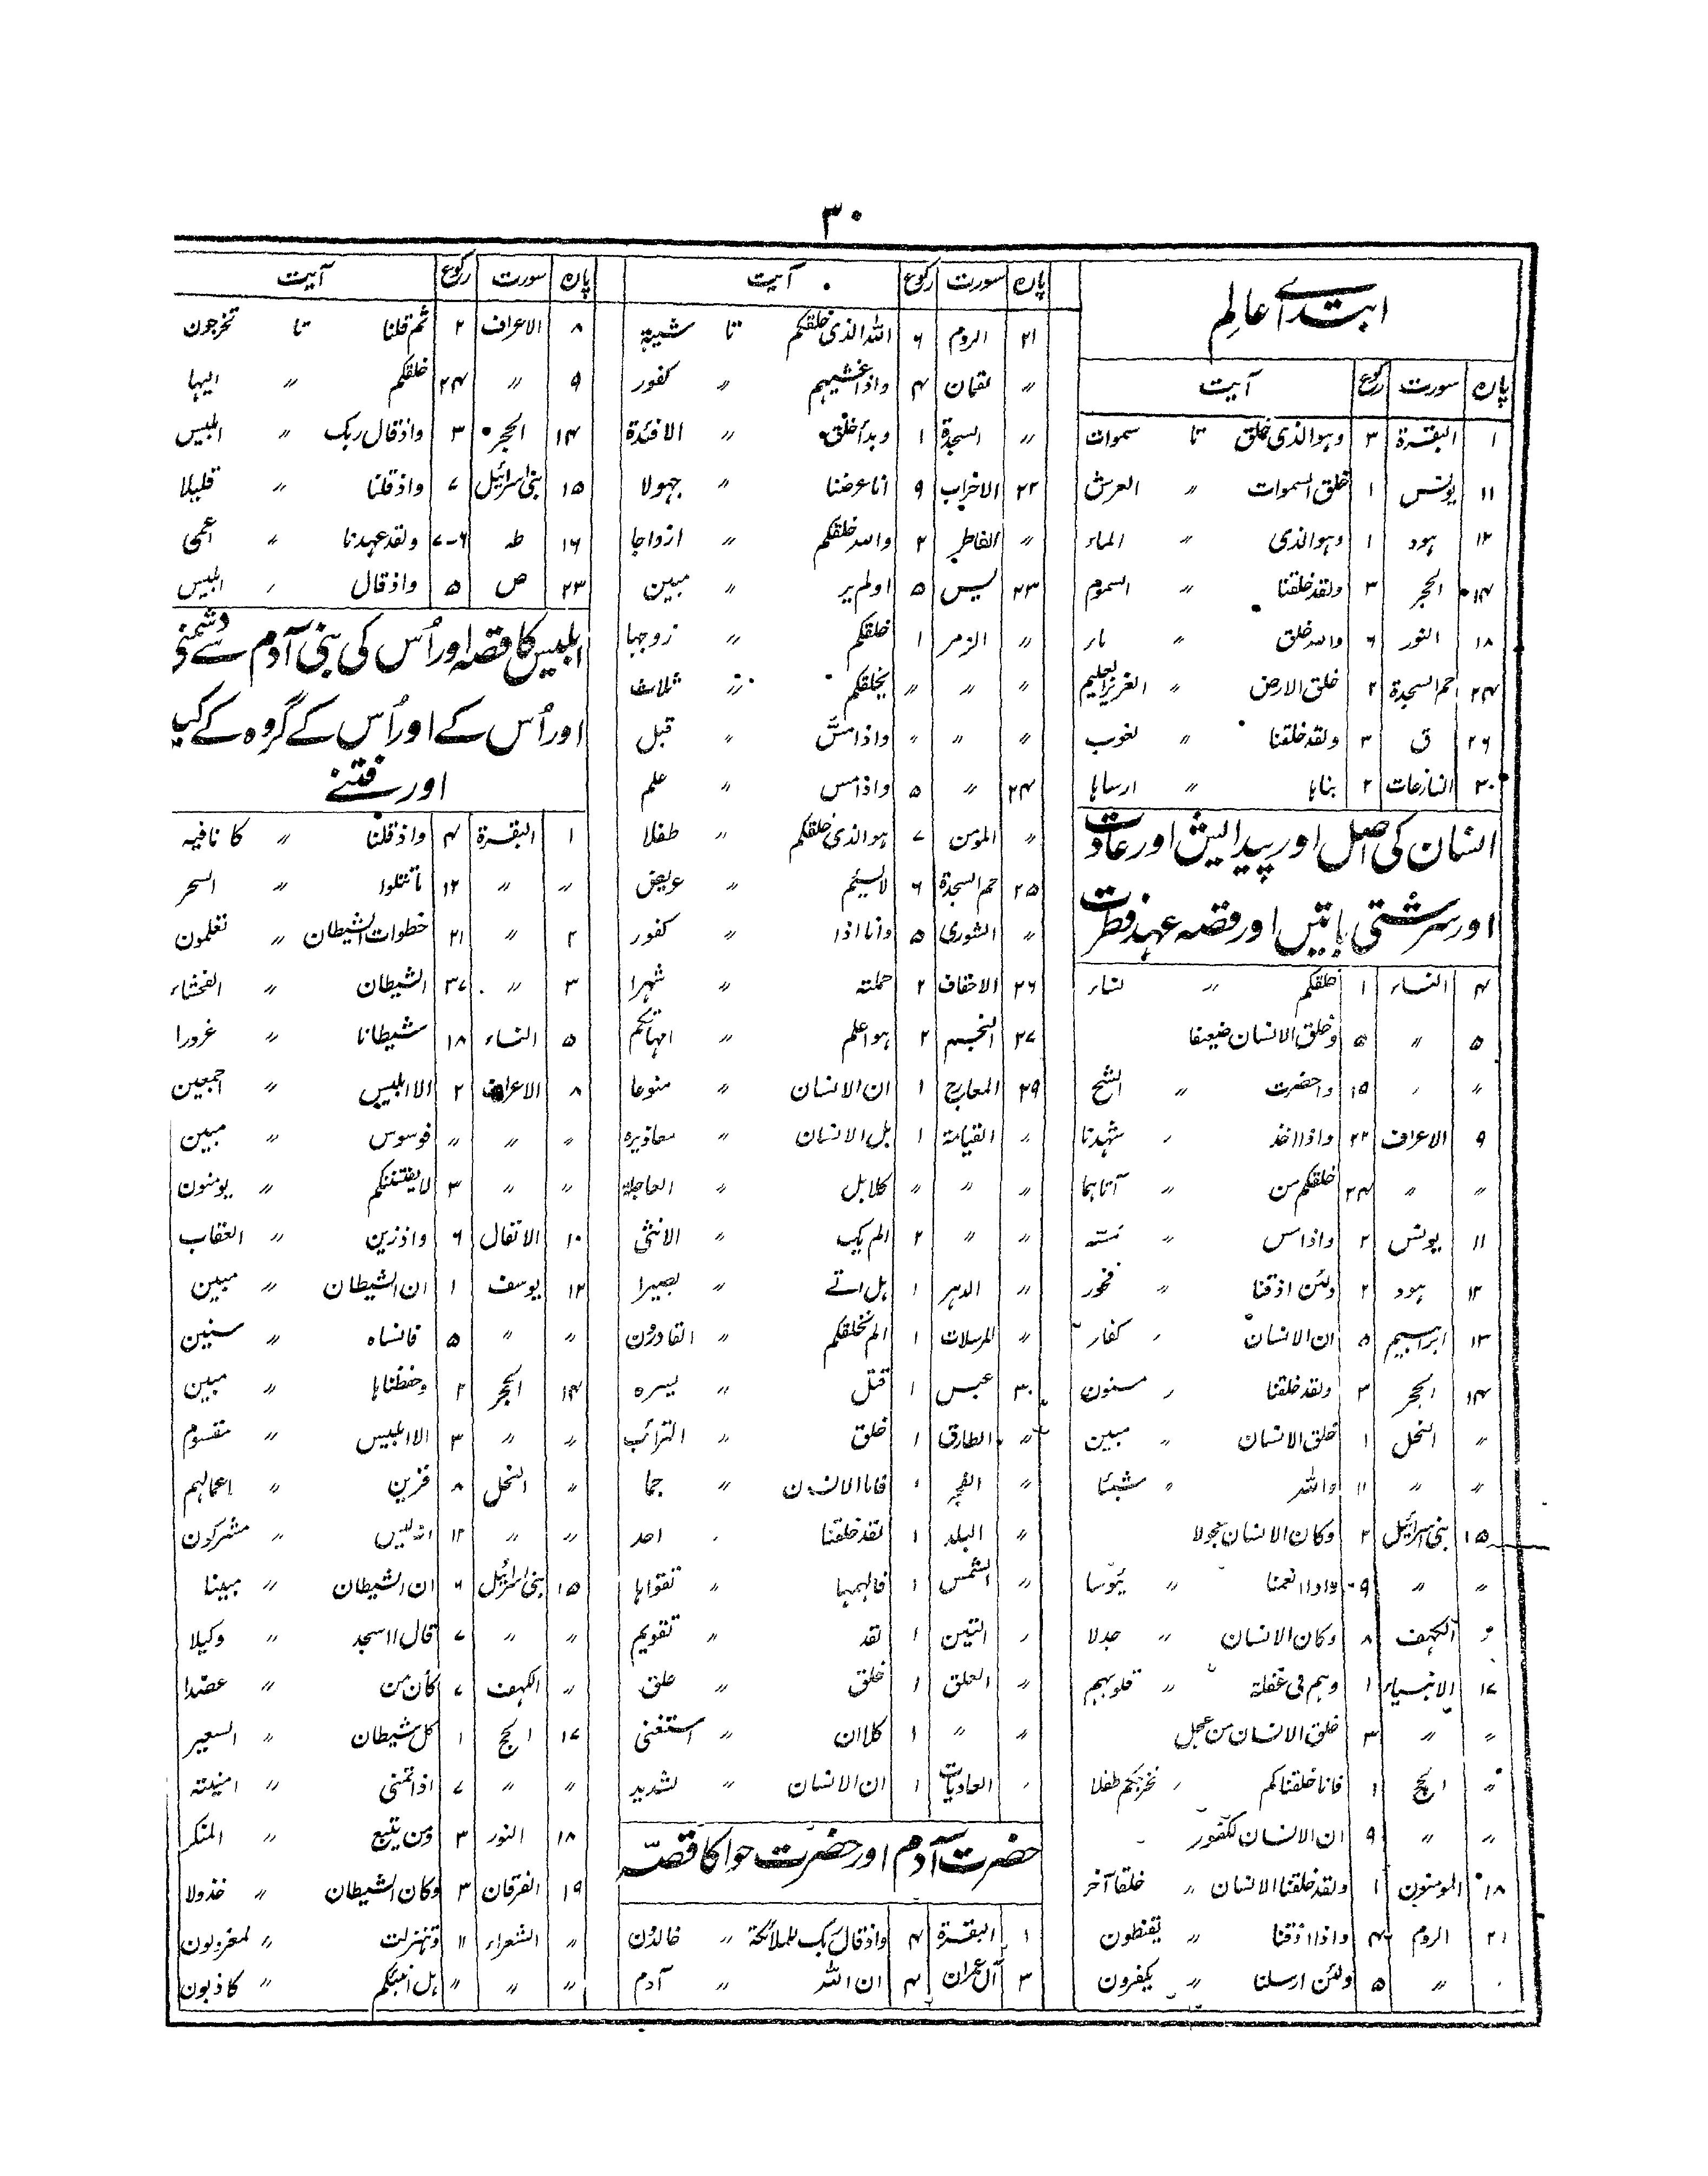 ۳۰
ابتدائے عالم
پارہ سورت رکوع آیت
۱ البقرۃ ۳ وہوالذی خلق تا سموات
۱۱ یونس ۱ خلق السموات 〃 العرش
۱۲ ہود ۱ وہوالذی 〃 الماء
۱۴ الحجر ۳ ولقد خلقنا 〃 السموم
۱۸ النور ۶ واللہ خلق 〃 ماء
۲۴ حم السجدۃ ۲ خلق الارض 〃 العزیز العلیم
۲۶ ق ۳ ولقد خلقنا 〃 لغوب
۳۰ النازعات ۲ بناہا 〃 ارساہا
انسان کی اصل اور پیدائش اور عادت
اور سرشتی باتیں اور قصہ عہد فطرت
۴ النساء ۱ خلقکم 〃 نساء
۵ 〃 ۵ وخلق الانسان ضیعفا
〃 〃 ۱۵ واحضرت 〃 الشح
۹ الاعراف ۲۲ واذا اخذ 〃 شہدنا
〃 〃 ۲۴ خلقکم من 〃 آتاہما
۱۱ یونس ۲ واذا مس 〃 مسّہ
۱۲ ہود ۲ ولئن اذقنا 〃 فخور
۱۳ ابراہیم ۵ ان الانسان 〃 کفار
۱۴ الحجر ۳ ولقد خلقنا 〃 مسنون
〃 النحل ۱ خلق الانسان 〃 مبین
〃 〃 ۱۱ واللہ 〃 شیئا
۱۵ بنی اسرائیل ۲ وکان الانسان عجولا
〃 〃 ۹ واذا انعمنا 〃 یؤسا
〃 الکہف ۸ وکان الانسان 〃 جدلا
۱۷ الانبیاء ۱ وہم فی غفلۃ 〃 قلوبہم
〃 〃 ۳ خلق الانسان من عجل
〃 الحج ۱ فانا خلقناکم 〃 نخرجکم طفلا
〃 〃 ۹ ان الانسان لکفور
۱۸ المومنون ۱ ولقد خلقنا الانسان 〃 خلقا آخر
۲۱ الروم ۴ واذا اذقنا 〃 یقنطون
〃 〃 ۵ ولئن ارسلنا 〃 یکفرون
پارہ سورت رکوع آیت
۲۱ الروم ۶ اللہ الذی خلقکم تا شیبۃ
〃 لقمان ۴ واذا غشیہم 〃 کفور
〃 السجدۃ ۱ وبدأ خلق 〃 الافئدۃ
۲۲ الاحزاب ۹ انا عرضنا 〃 جہولا
〃 الفاطر ۲ واللہ خلقکم 〃 ازواجا
۲۳ یٰس ۵ اولم یر 〃 مبین
〃 الزمر ۱ خلقکم 〃 زوجہا
〃 〃 〃 یخلقکم 〃 ثلاث
〃 〃 〃 واذا مسّ 〃 قبل
۲۴ 〃 ۵ واذا مس 〃 علم
〃 المومن ۷ ہوالذی خلقکم 〃 طفلا
۲۵ حم السجدۃ ۶ لا یسئم 〃 عریض
〃 الشوری ۵ وانا اذا 〃 کفور
۲۶ الاحقاف ۲ حملتہ 〃 شہرا
۲۷ النجم ۲ ہو اعلم 〃 امہاتکم
۲۹ المعارج ۱ ان الانسان 〃 منوعا
〃 القیامۃ ۱ بل الانسان 〃 معاذیرہ
〃 〃 〃 کلا بل 〃 العاجلۃ
〃 〃 ۲ الم یک 〃 الانثی
〃 الدہر ۱ ہل اتے 〃 بصیرا
〃 المرسلات ۱ الم نخلقکم 〃 القادرون
۳۰ عبس ۱ قتل 〃 یسرہ
〃 الطارق ۱ خلق 〃 الترائب
〃 الفجر 〃 فاما الانسان 〃 جما
〃 البلد ۱ لقد خلقنا 〃 احد
〃 الشمس ۱ فالہمہا 〃 تقواہا
〃 التین ۱ لقد 〃 تقویم
〃 العلق ۱ خلق 〃 علق
〃 〃 ۱ کلا ان 〃 استغنی
〃 العادیات ۱ ان الانسان 〃 لشدید
حضرت آدم اور حضرت حوا کا قصّہ
۱ البقرۃ ۴ واذ قال ربک للملائکۃ 〃 خالدون
۳ آل عمران ۴ ان اللہ 〃 آدم
پارہ سورت رکوع آیت
۸ الاعراف ۲ ثم قلنا تا تخرجون
۹ 〃 ۲۴ خلقکم 〃 الیہا
۱۴ الحجر ۳ واذ قال ربک 〃 ابلیس
۱۵ بنی اسرائیل ۷ واذ قلنا 〃 قلیلا
۱۶ طہ ۶-۷ ولقد عہدنا 〃 اعمی
۲۳ ص ۵ واذ قال 〃 ابلیس
ابلیس کا قصہ اور اُس کی بنی آدم سے دشمنی
اور اُس کے اور اُس کے گروہ کے کید
اور فتنے
۱ البقرۃ ۴ واذ قلنا 〃 کانا فیہ
〃 〃 ۱۲ ما تتلوا 〃 السحر
۲ 〃 ۲۱ خطوات الشیطان 〃 تعلمون
۳ 〃 ۳۷ الشیطان 〃 الفحشاء
۵ النساء ۱۸ شیطانا 〃 غرورا
۸ الاعراف ۲ الا ابلیس 〃 اجمعین
〃 〃 〃 فوسوس 〃 مبین
〃 〃 ۳ لا یفتننکم 〃 یومنون
۱۰ الانفال ۶ واذ زین 〃 العقاب
۱۲ یوسف ۱ ان الشیطان 〃 مبین
〃 〃 ۵ فانساہ 〃 سنین
۱۴ الحجر ۲ وحفظناہا 〃 مبین
〃 〃 ۳ الا ابلیس 〃 مقسوم
〃 النحل ۸ فزین 〃 اعمالہم
〃 〃 ۱۳ 〃 مشرکون
۱۵ بنی اسرائیل ۶ ان الشیطان 〃 مبینا
〃 〃 ۷ قال ااسجد 〃 وکیلا
〃 الکہف ۷ کان من 〃 عضدا
۱۷ الحج ۱ کل شیطان 〃 السعیر
〃 〃 ۷ اذا تمنی 〃 امنیتہ
۱۸ النور ۳ ومن یتبع 〃 المنکر
۱۹ الفرقان ۳ وکان الشیطان 〃 خذولا
〃 الشعراء ۱۱ وتنزلت 〃 لمعزولون
〃 〃 〃 ہل انبئکم 〃 کاذبون